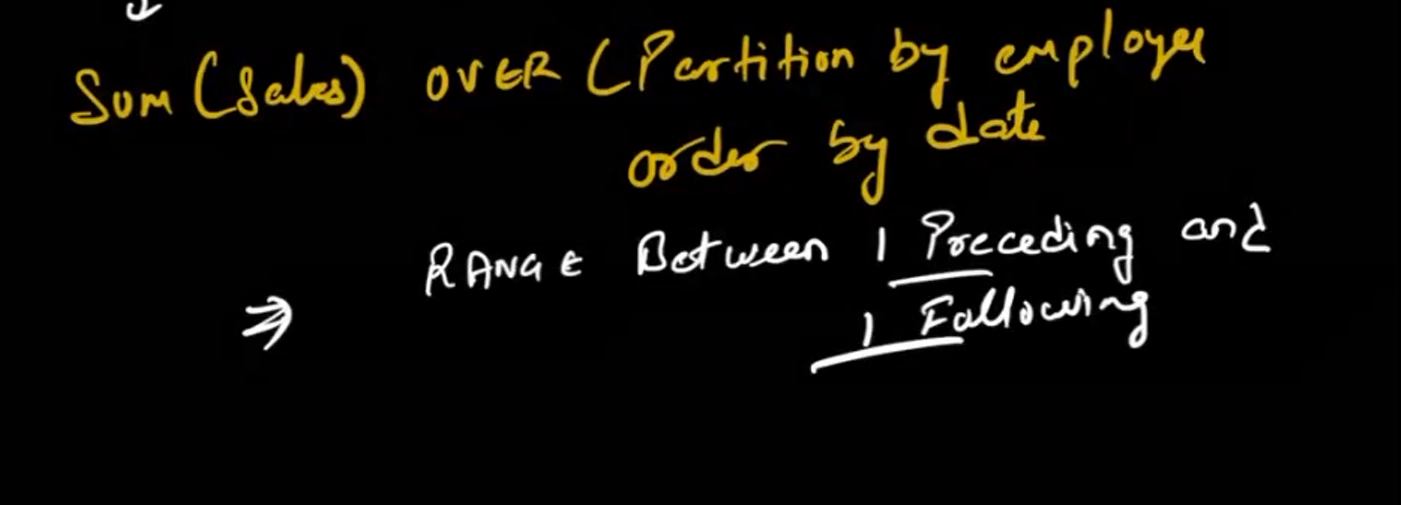 Sum (Sales) OVER (Partition by employee
order by date
RANGE Between 1 Preceding and
1 Following